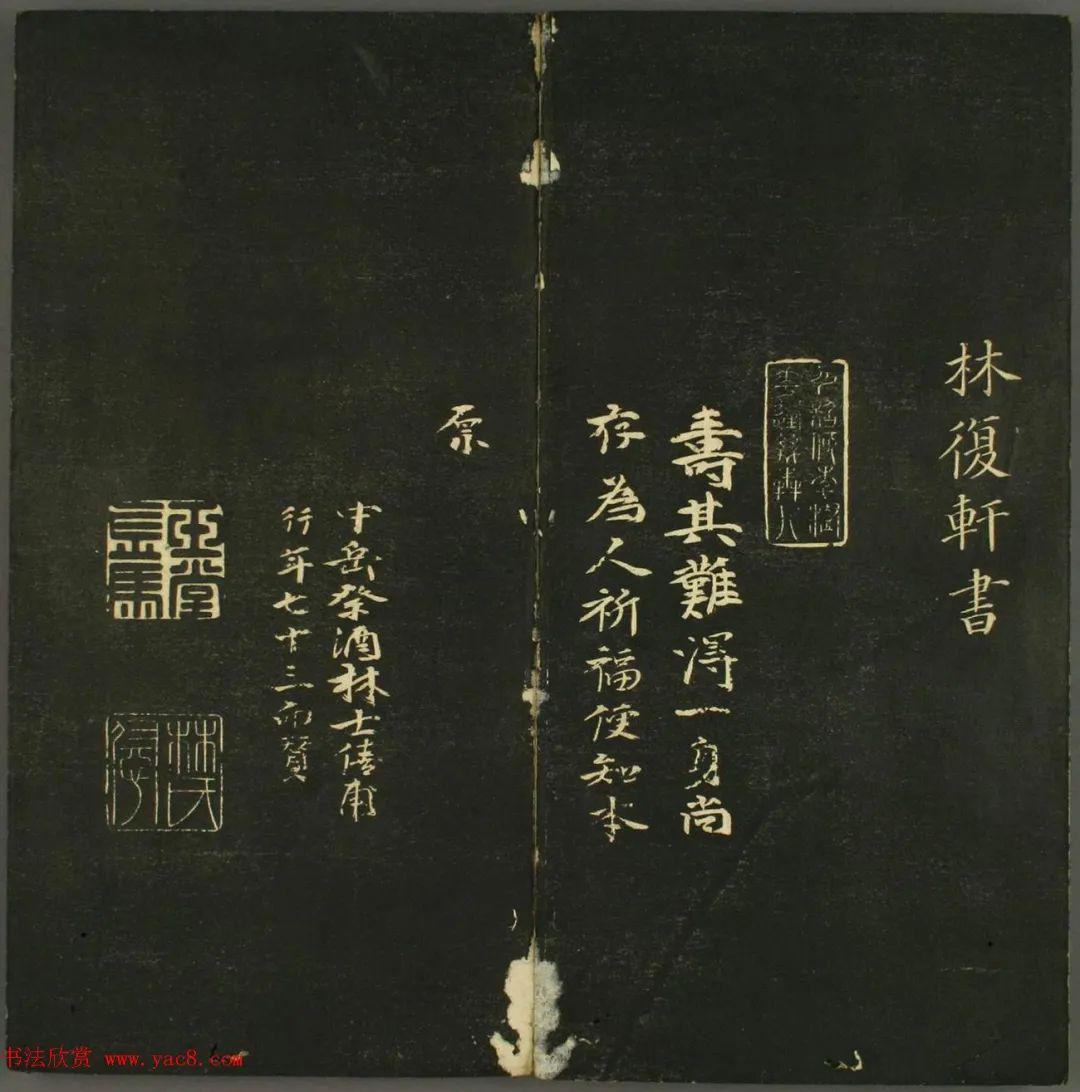 林復軒書
壽其難得一身尚
存為人祈福便知本
原
中岳祭酒林士僖甫
行年七十三而贊
林氏
书法欣赏 www.yac8.com